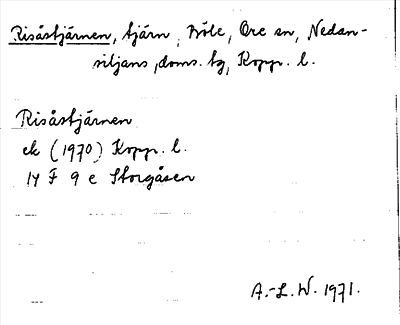 Risåstjärnen, tjärn, Böle, Ore sn, Nedan-
siljans doms. tg, Kopp. l.
Risåstjärnen
ek (1970) Kopp. l.
14 F 9 e Storgåsen
A.-L. W. 1971.